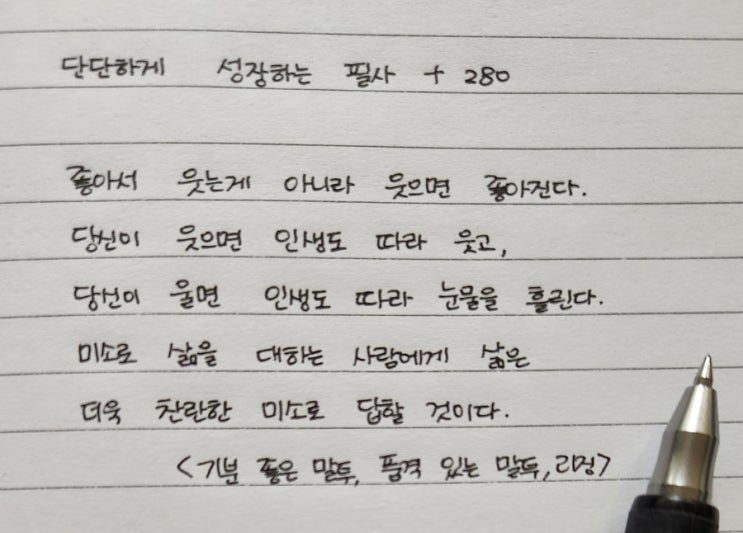 단단하게 성장하는 필사 + 280
좋아서 웃는게 아니라 웃으면 좋아진다.
당신이 웃으면 인생도 따라 웃고,
당신이 울면 인생도 따라 눈물을 흘린다.
미소로 삶을 대하는 사람에게 삶은
더욱 찬란한 미소로 답할 것이다.
<기분 좋은 말투, 품격 있는 말투, 리정>